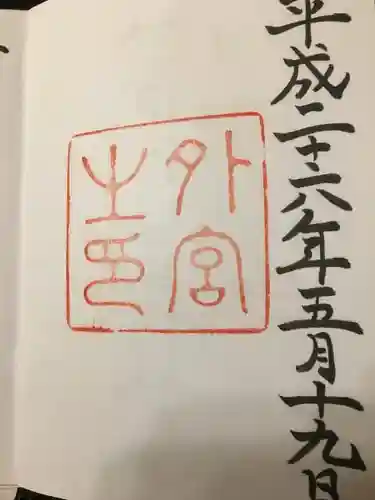 平成二十六年五月十九日
外宮
之印